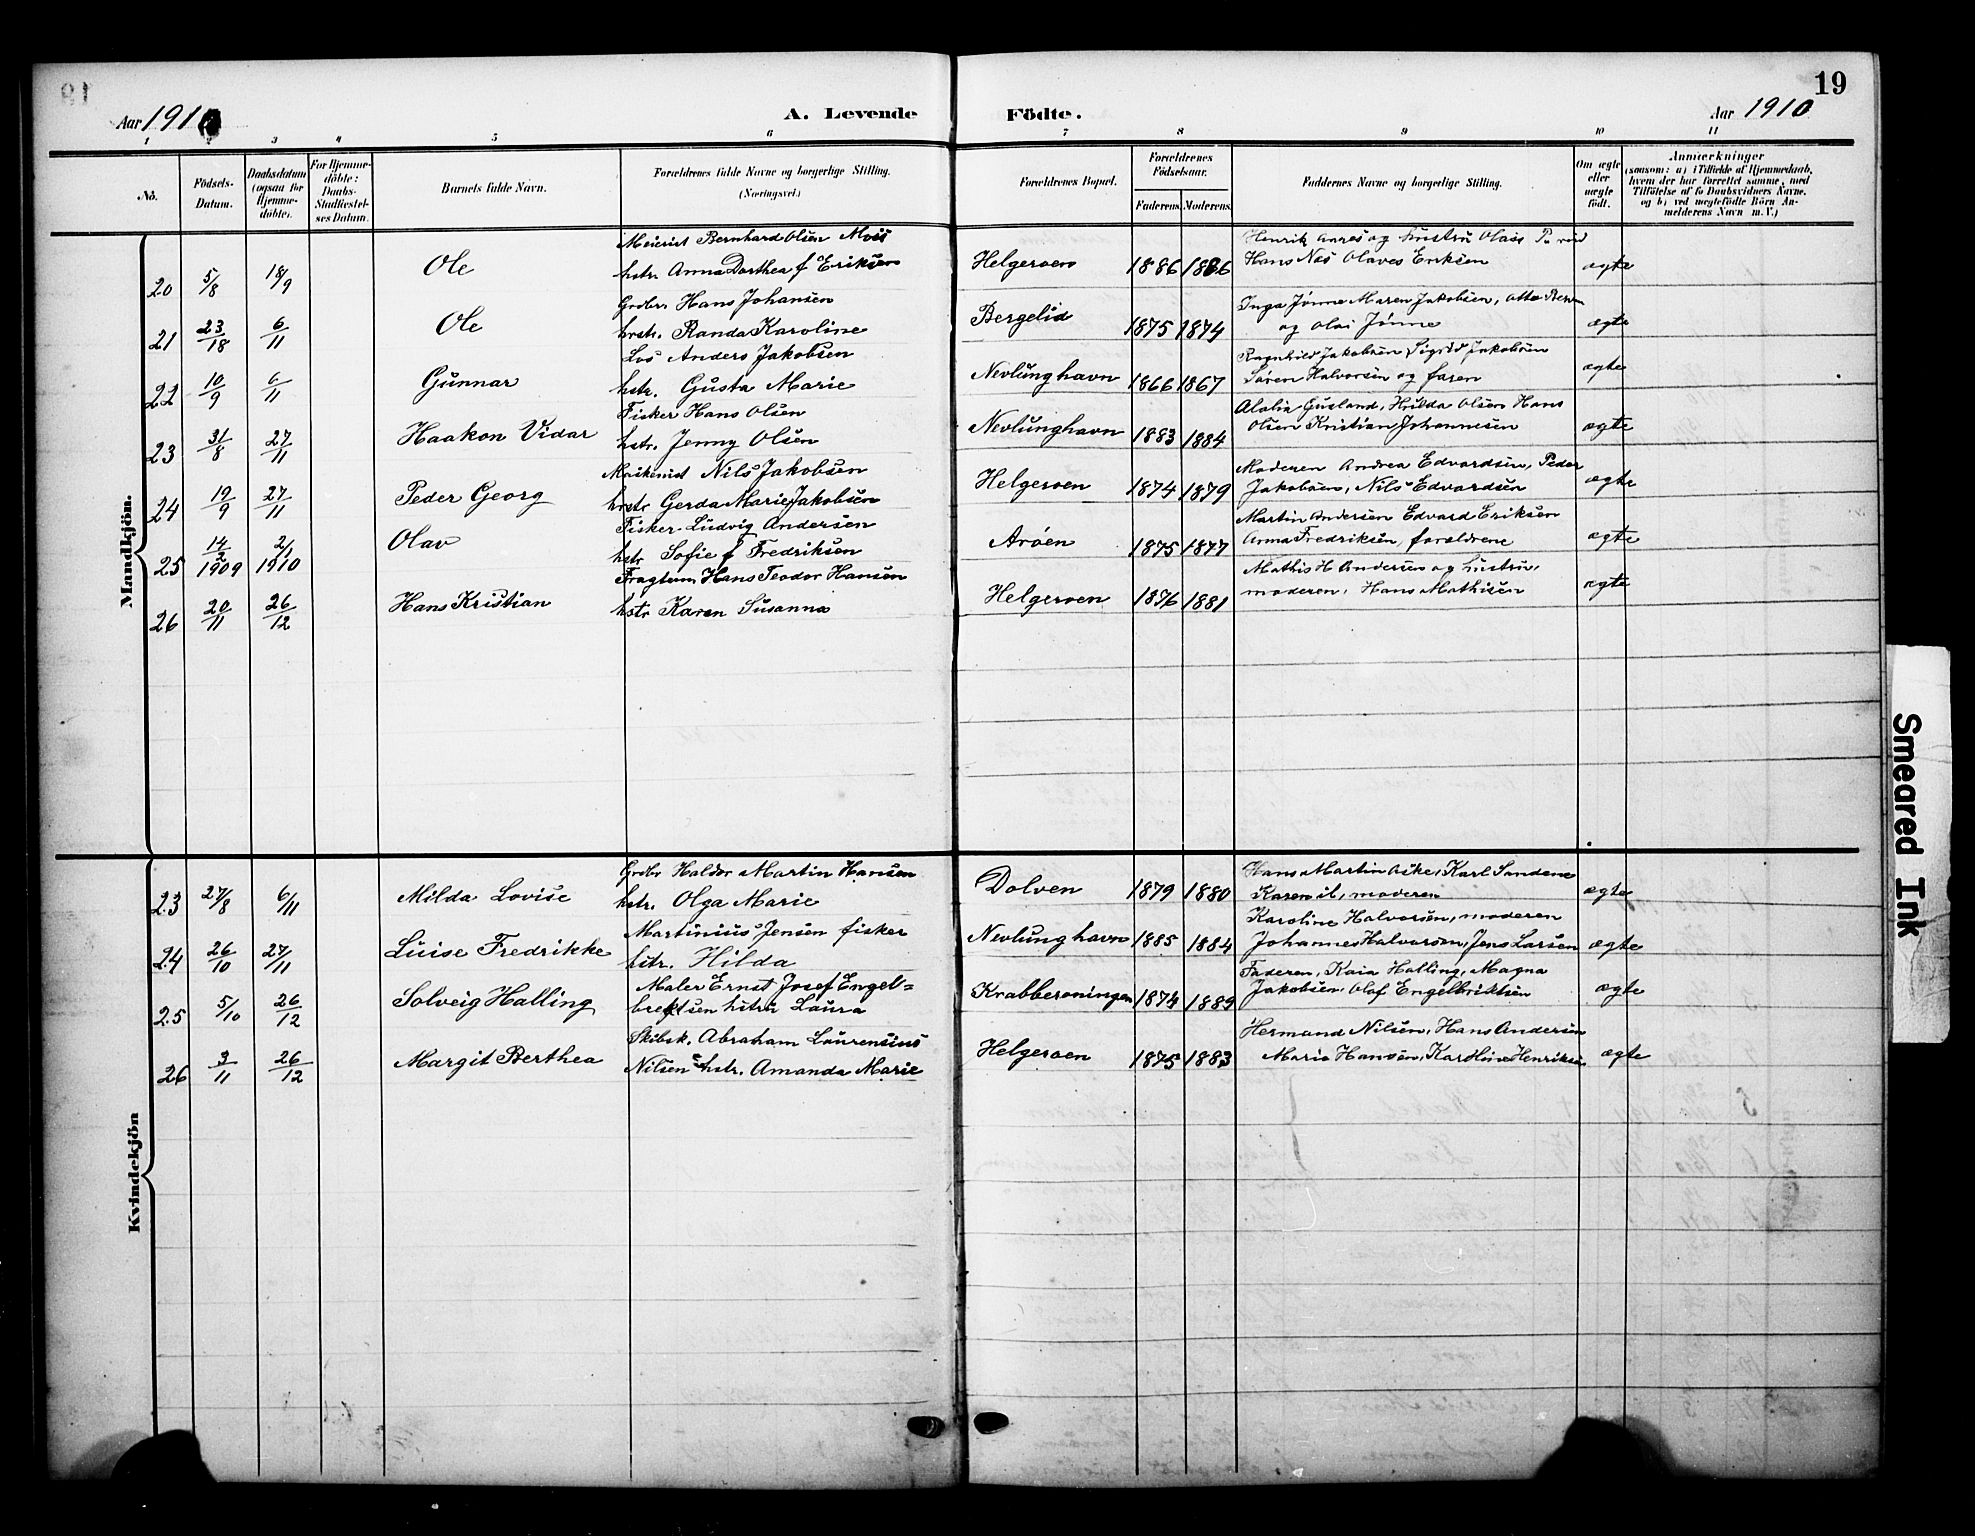 19
Aar 1910 A. Levende Födte. Aar 1910
1 2 3 4 5 6 7 8 9 10 11
No. Födsels-Datum. Daabsdatum (ogsaa for Hjemme-döbte). For Hjemme-döbte: Daabs-Stadfæstel-ses Datum. Barnets fulde Navn. Forældrenes fulde Navne og borgerlige Stilling. (Næringsvei.) Forældrenes Bopæl. Forældrenes Födselsaar. Faderens. Moderens. Faddernes Navne og borgerlige Stilling. Om ægte eller uægte födt. Anmærkninger (saasom: a) i Tilfælde af Hjemmedaab, hvem der har forrettet samme, med Tilföielse af to Daabsvidners Navne, og b) ved uegtefödte Börn An-melderens Navn m. V.)
Mandkjön.
Meierist Bernhard Olsen Henrik og hustru
20 5/8 18/9 Ole hstr. Anna Dorthea f Eriksen Helgeroen 1886 1886 Hans Nes Olaves Eriksen ægte
Grdbr. Hans Johansen Inga Jönne Maren Jakobsen, Otto
21 23/18 6/11 Ole hustr. Randa Karoline Bergelid 1875 1874 og Olai Jönne ægte
Los Anders Jakobsen Ragnhild Jakobsen, Sigrid Jakobsen
22 10/9 6/11 Gunnar hstr. Gusta Marie Nevlunghavn 1866 1867 Sören Halvorsen og faren ægte
Fisker Hans Olsen Gusland, Hilda Olsen Hans
23 31/8 27/11 Haakon Vidar hstr. Jenny Olsen Nevlunghavn 1883 1884 Olsen Kristian Johannesen ægte
Maskenist Nils Jakobsen Moderen Andrea Edvardsen, Peder
24 19/9 27/11 Peder Georg hustr Gerda Marie Jakobsen Helgeroen 1874 1879 Jakobsen, Nils Edvardsen ægte
Fisker Ludvig Andersen Martin Andersen Edvard Eriksen
25 14/2 1909 2/1 1910 Olav hstr Sofie f Fredriksen Aröen 1875 1877 Anna Fredriksen, forældrene ægte
Fragtem Hans Teodor Hansen Mathis H Andersen og hustru,
26 20/11 26/12 Hans Kristian hstr Karen Susanna Helgeroen 1876 1881 moderen, Hans Mathisen ægte
Kvindekjön
Grdbr Haldor Martin Hansen Hans Martin Aske, Karl Sandene
23 27/8 6/11 Milda Lovise hstr. Olga Marie Dolven 1879 1880 Karen il, moderen ægte
Martinius Jensen fisker Karoline Halvorsen, moderen
24 26/10 27/11 Luise Fredrikke hstr. Hilda Nevlunghavn 1885 1884 Johannes Halvorsen, Jens Larsen ægte
Maler Ernst Josef Engel= Faderen, Kaia Halling, Magna
25 5/10 26/12 Solveig Halling brektsen hstru Laura Krabberöningen 1874 1889 Jakobsen, Olaf Engelbriktsen ægte
Skibsk. Abraham Laurensius Hermand Nilsen, Hans Andersen
26 3/11 26/12 Margit Berthea Nilsen hstr. Amanda Marie Helgeroen 1875 1883 Maria Hansen, Karoline Henriksen ægte
Smeared Ink